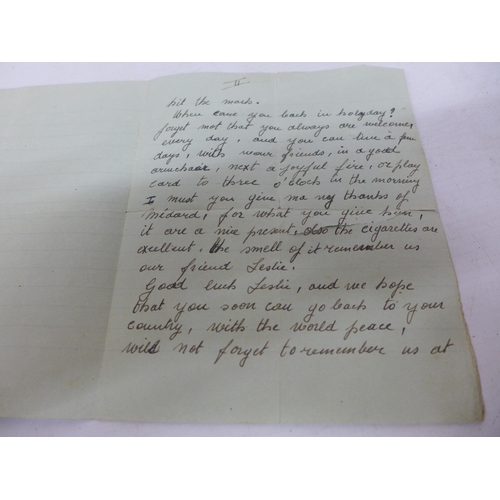 II
hit the mach.
When came you back in holyday?
forget not that you always are welcomen
every day, and you can live a few
days, with your friends, in a good
armchair, next a joyful fire, or play
card to three o'cloch in the morning
I must you give many thanks of
midard, for what you give him,
it are a nice present, also the cigarettes are
exellent. the smell of it remember us
our friend Leslie.
Good luck Leslie, and we hope
that you soon can go back to your
country, with the world peace,
will not forget to remember us at